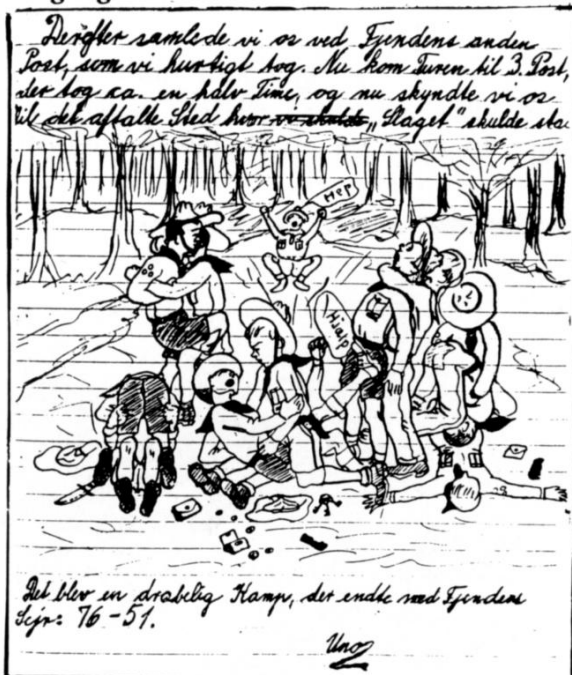 Derefter samlede vi os ved Fjendens anden
Post, som vi hurtigt tog. Nu kom Turen til 3. Post,
der tog ca. en halv Time, og nu skyndte vi os
til det aftalte Sted hvor vi skulde „Slaget" skulde sta
HEP
Hjælp
Det blev en drabelig Kamp, der endte med Fjendens
Sejr: 76-51.
Uno